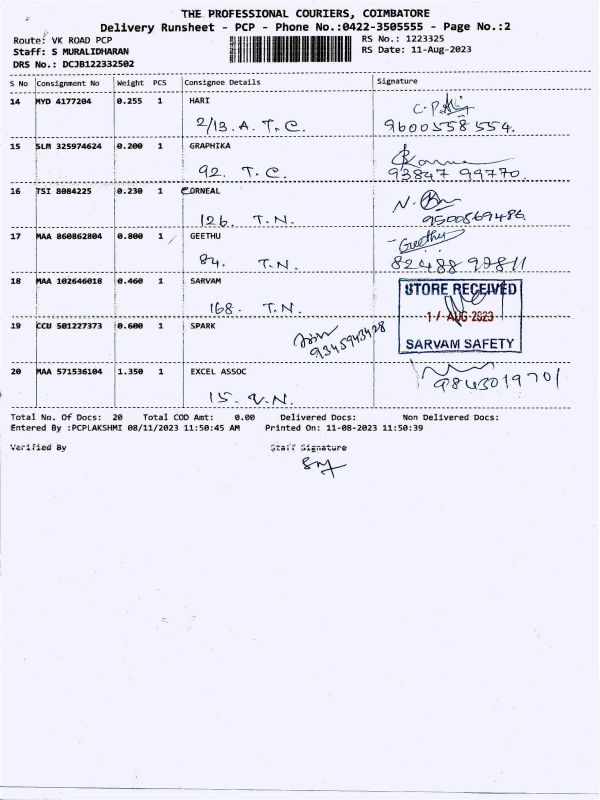 THE PROFESSIONAL COURIERS, COIMBATORE
Delivery Runsheet - PCP - Phone No.:0422-3505555 - Page No.:2
Route: VK ROAD PCP RS No.: 1223325
Staff: S MURALIDHARAN RS Date: 11-Aug-2023
DRS No.: DCJB122332502
S No Consignment No Weight PCS Consignee Details Signature
14 MYD 4177204 0.255 1 HARI
2/13. A. T. C. 9600558554.
15 SLM 325974624 0.200 1 GRAPHIKA
92. T. C. 93847 99770.
16 TSI 8084225 0.230 1 CORNEAL
126. T.N. 9500569486
17 MAA 860862804 0.800 1 GEETHU Geethu
84. T.N. 82488 97811
18 MAA 102646018 0.460 1 SARVAM STORE RECEIVED
168. T.N. 1 / AUG 2023
19 CCU 501227373 0.600 1 SPARK 9345943428 SARVAM SAFETY
20 MAA 571536104 1.350 1 EXCEL ASSOC 9843019701
15. V.N.
Total No. Of Docs: 20 Total COD Amt: 0.00 Delivered Docs: Non Delivered Docs:
Entered By :PCPLAKSHMI 08/11/2023 11:50:45 AM Printed On: 11-08-2023 11:50:39
Verified By Staff Signature